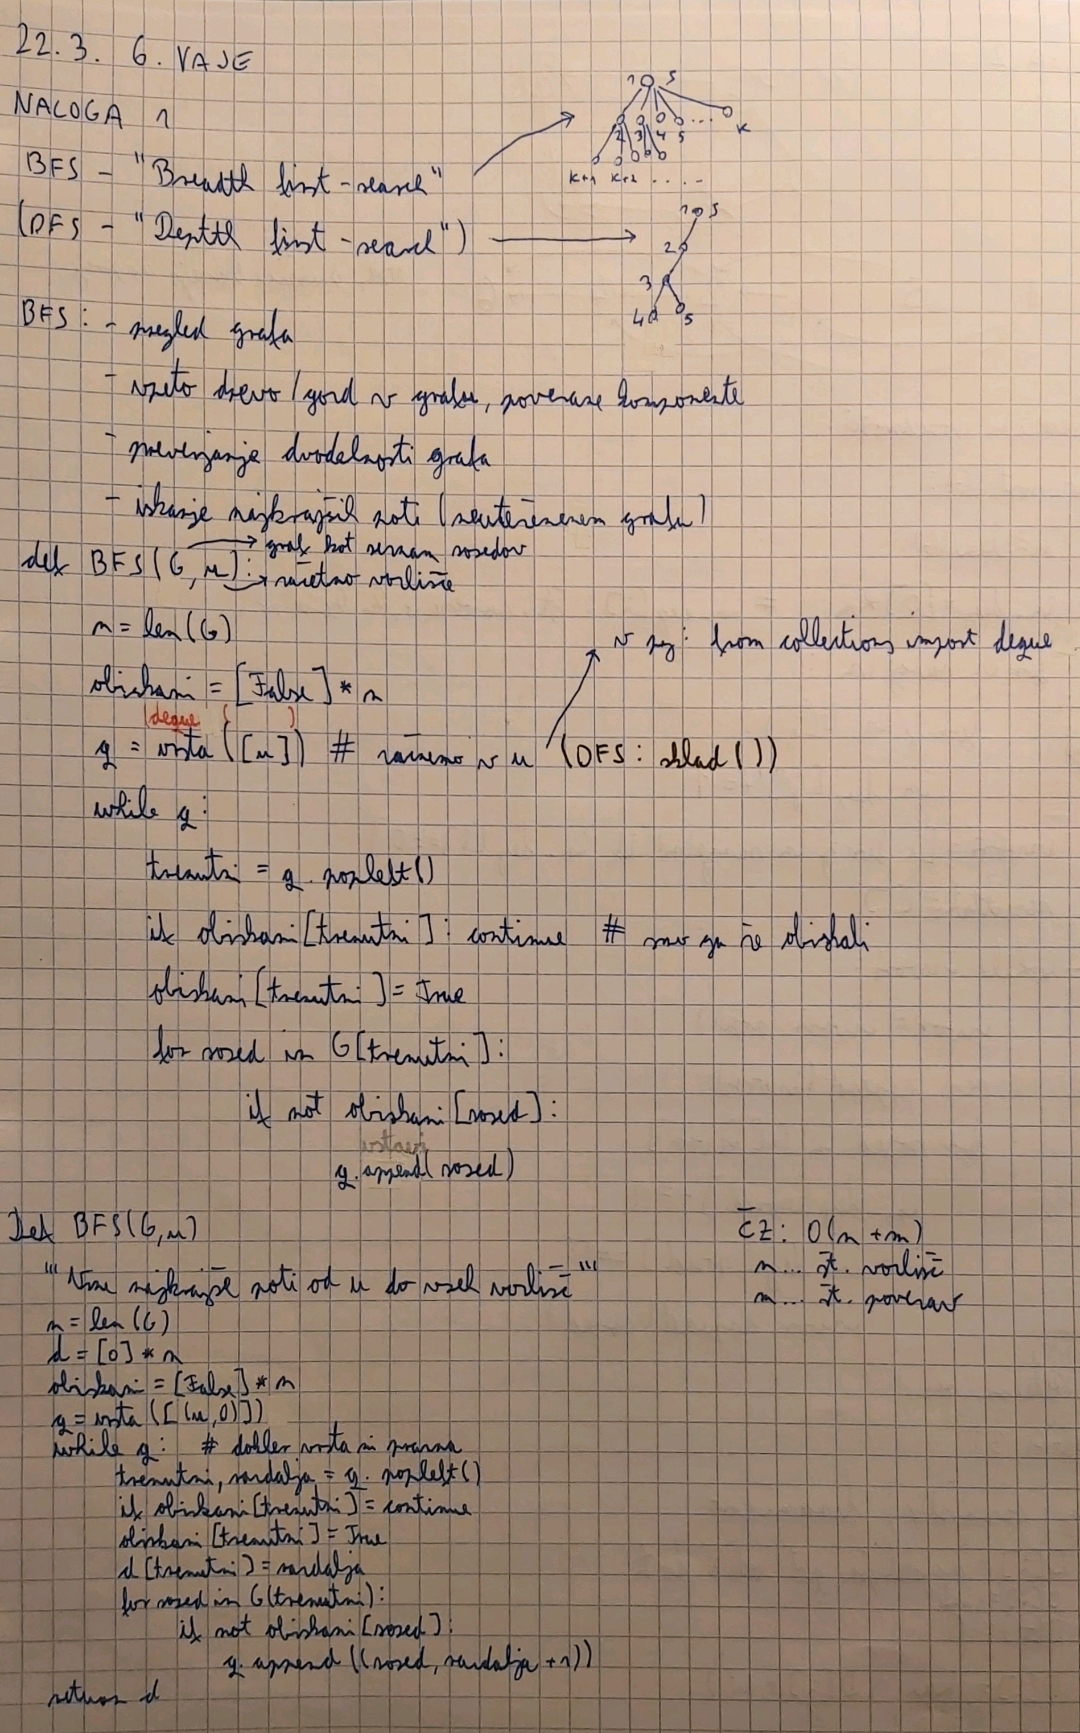 22.3. 6. VAJE
NALOGA 1
BFS - "Breadth first-search"
(DFS - "Deptth first-search")
1 S
2 3 4 5 ... K
K+1 K+2 ....
1 S
2
3
4 5
BFS: - pregled grafa
- vpeto drevo/gozd v grafu, povezane komponente
- preverjanje dvodelnosti grafa
- iskanje najkrajših poti (neuteženem grafu)
def BFS(G, u):
→ graf kot seznam sosedov
→ začetno vozlišče
n = len(G)
obiskani = [False] * n
(deque ( )
q = vrsta ([u]) # začnemo v u (DFS: sklad())
v py: from collections import deque
while q:
trenutni = q.popleft()
if obiskani[trenutni]: continue # smo ga že obiskali
obiskani[trenutni] = True
for sosed in G[trenutni]:
if not obiskani[sosed]:
vstavi
q.append(sosed)
Def BFS(G,u)
"'Vrne najkrajše poti od u do vseh vozlišč"'
n = len(G)
d = [0] * n
obiskani = [False] * n
q = vrsta ([(u,0)])
while q: # dokler vrsta ni prazna
trenutni, razdalja = q.popleft()
if obiskani[trenutni] = continue
obiskani[trenutni] = True
d[trenutni] = razdalja
for sosed in G(trenutni):
if not obiskani[sosed]:
q.append((sosed, razdalja +1))
return d
ČZ: O(n + m)
n... št. vozlišč
m... št. povezav